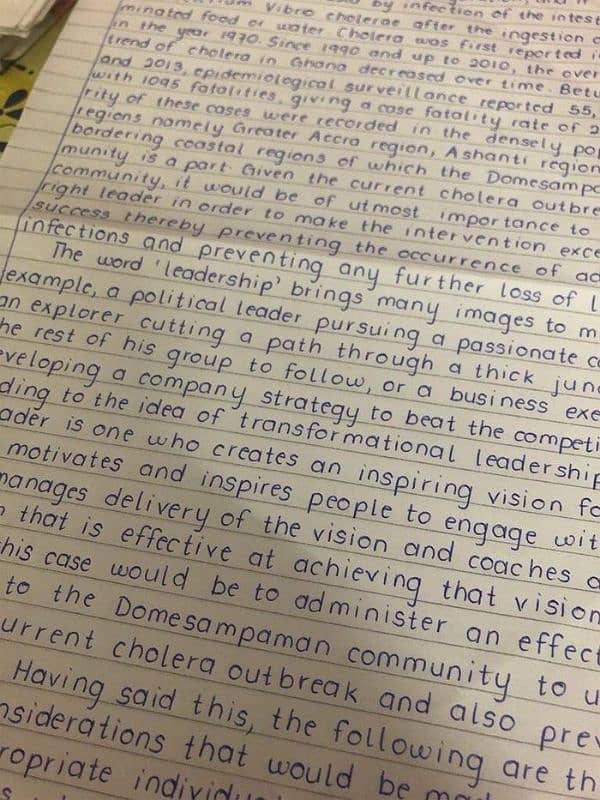 by infection of the intest
minated food or water Cholera was first reported i
in the year 1970. Since 1990 and up to 2010, the over
trend of cholera in Ghana decreased over time. Betw
and 2013, epidemiological surveillance reported 55,
with 1095 fatalities, giving a case fatality rate of 2
rity of these cases were recorded in the densely pop
regions namely Greater Accra region, Ashanti region
bordering coastal regions of which the Domesampa
munity is a part. Given the current cholera outbre
community, it would be of utmost importance to
right leader in order to make the intervention exce
success thereby preventing the occurrence of ad
infections and preventing any further loss of l
The word 'leadership' brings many images to m
example, a political leader pursuing a passionate c
an explorer cutting a path through a thick jung
he rest of his group to follow, or a business exe
eveloping a company strategy to beat the competi
ding to the idea of transformational leadership
ader is one who creates an inspiring vision fo
motivates and inspires people to engage wit
manages delivery of the vision and coaches a
n that is effective at achieving that vision
his case would be to administer an effect
to the Domesampaman community to u
urrent cholera outbreak and also prev
Having said this, the following are th
nsiderations that would be
ropriate individu